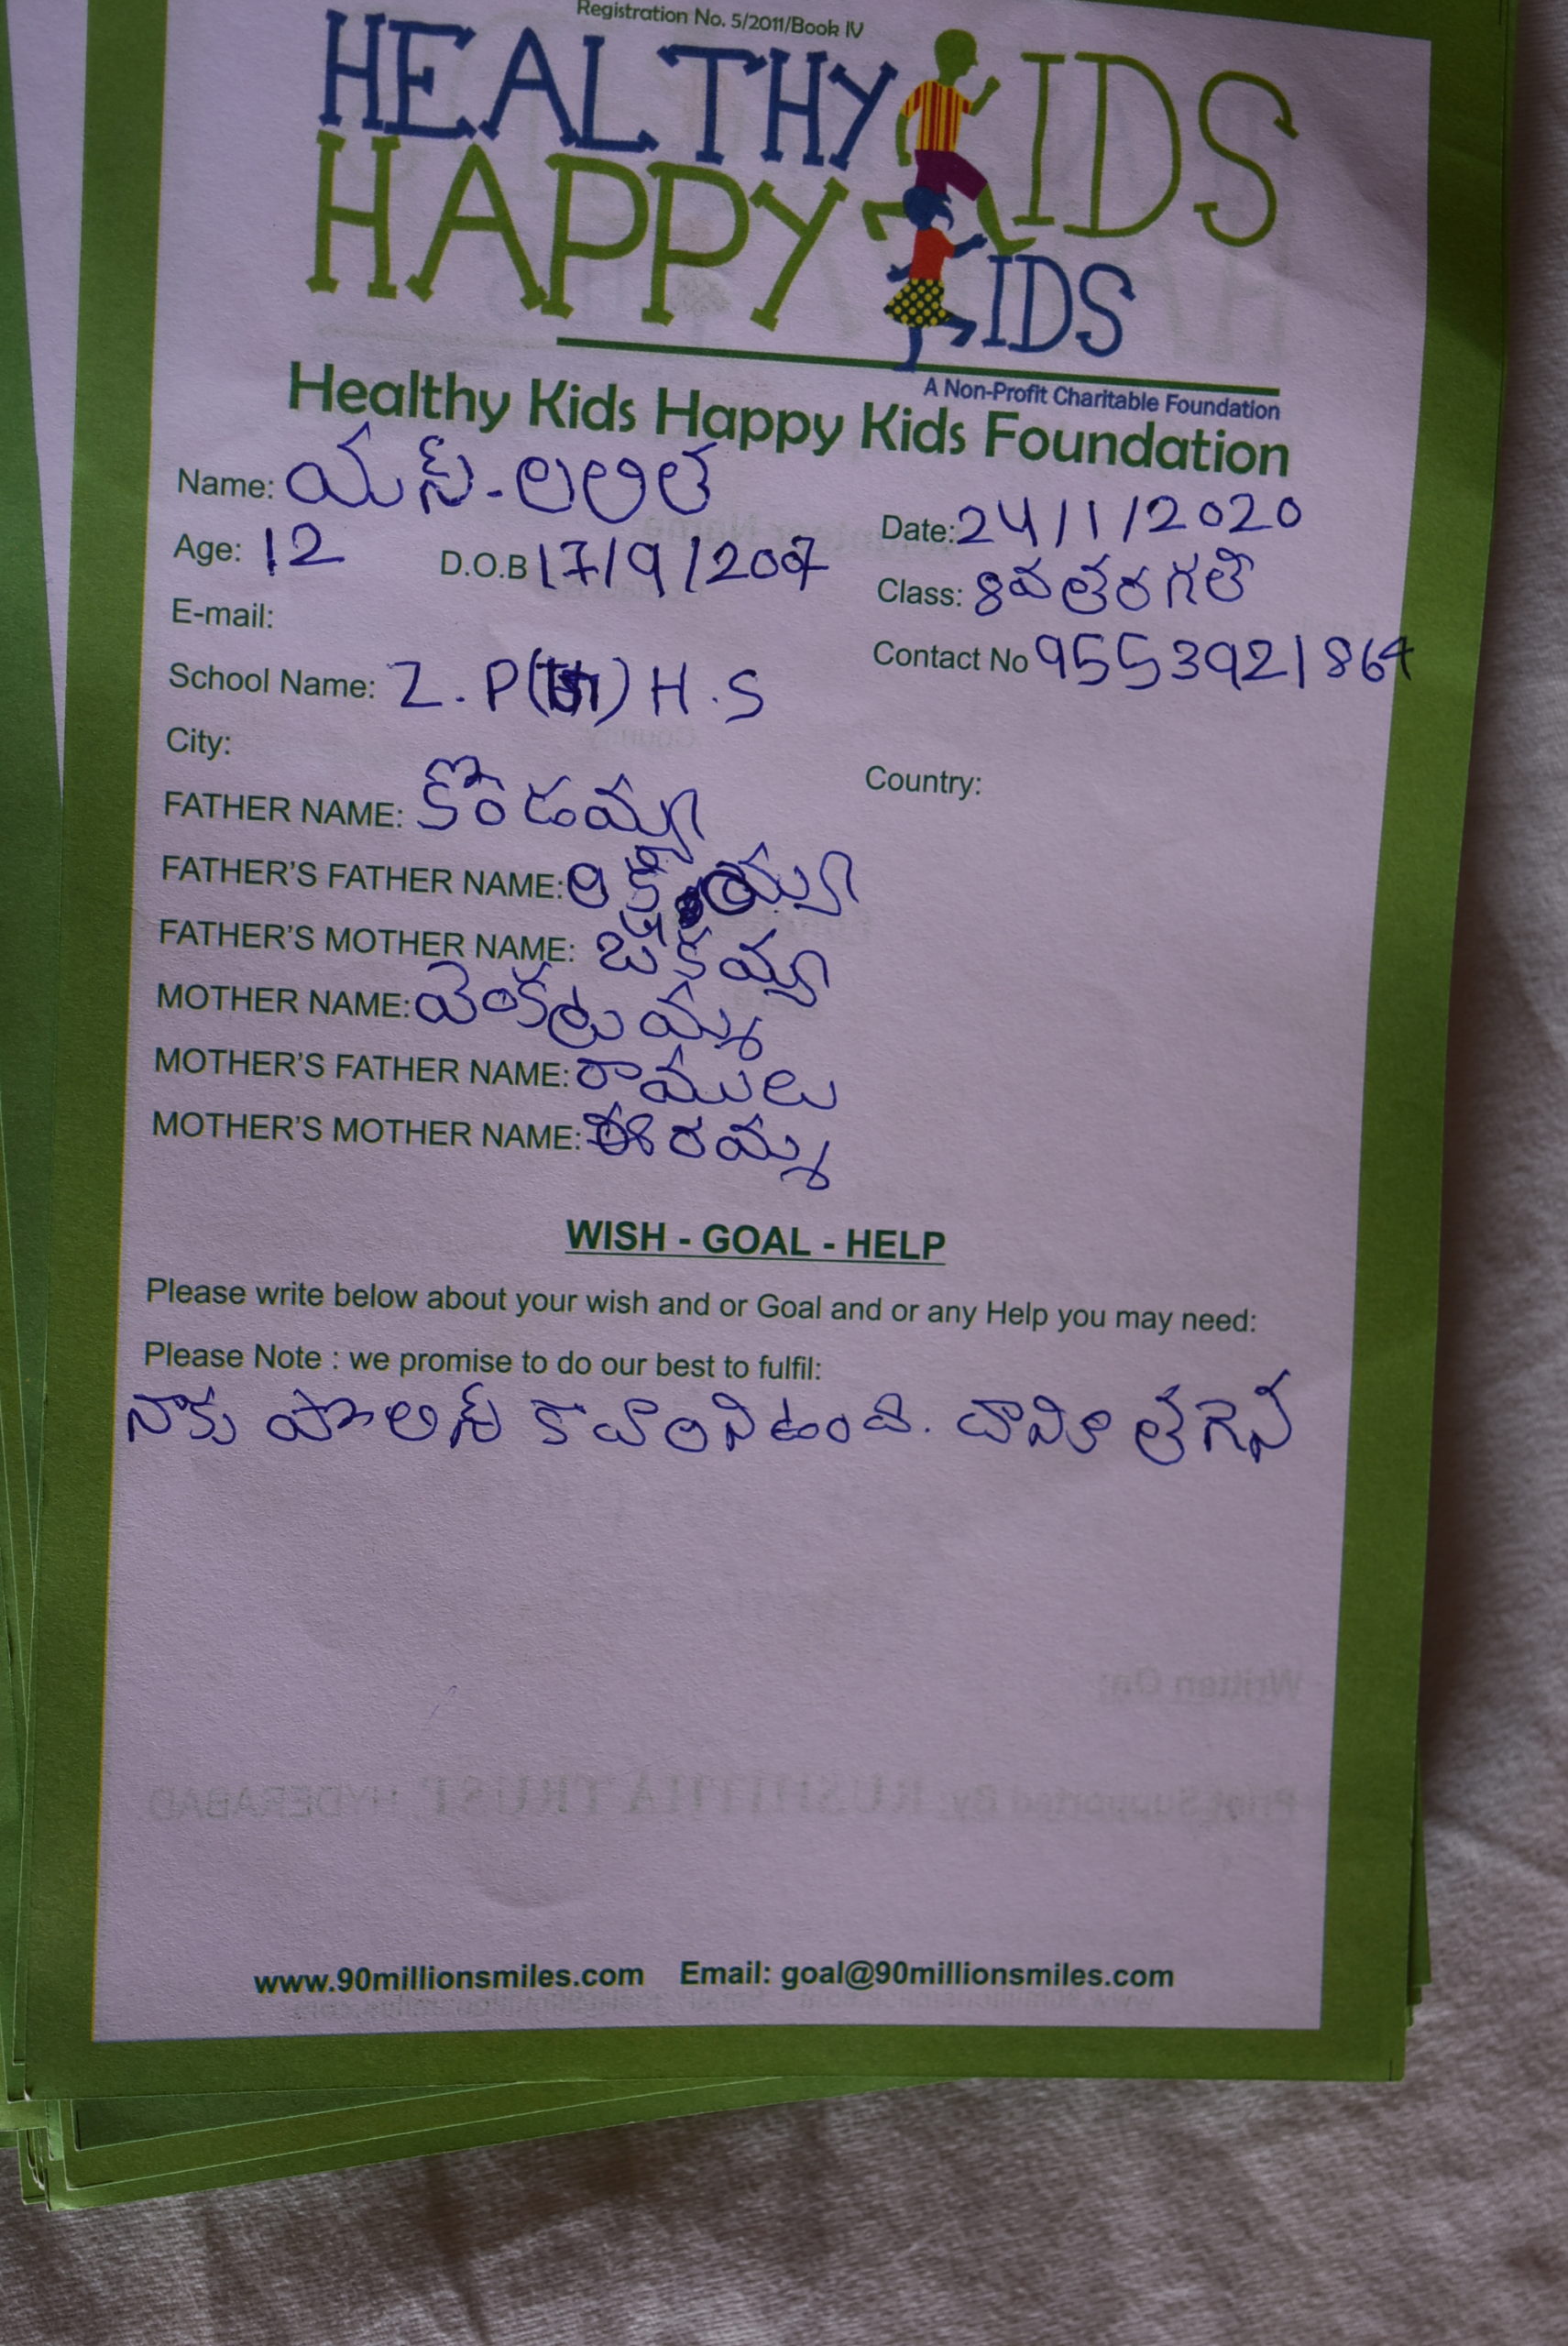 Registration No. 5/2011/Book IV
HEALTHY KIDS
HAPPY KIDS
A Non-Profit Charitable Foundation
Healthy Kids Happy Kids Foundation
Name: యస్.లలిత
Date: 24/1/2020
Age: 12 D.O.B 17/9/2007
Class: 8వ తరగతి
E-mail:
Contact No 9553921864
School Name: Z.P( ) H.S
City:
Country:
FATHER NAME: కొండయ్యా
FATHER'S FATHER NAME:
FATHER'S MOTHER NAME: బక్కయ్యా
MOTHER NAME: వెంకట్రమ్మ
MOTHER'S FATHER NAME: రాములు
MOTHER'S MOTHER NAME: ఈరమ్మ
WISH - GOAL - HELP
Please write below about your wish and or Goal and or any Help you may need:
Please Note : we promise to do our best to fulfil:
నాకు పొలిస్ కావాలనిఉంది.
www.90millionsmiles.com Email: goal@90millionsmiles.com